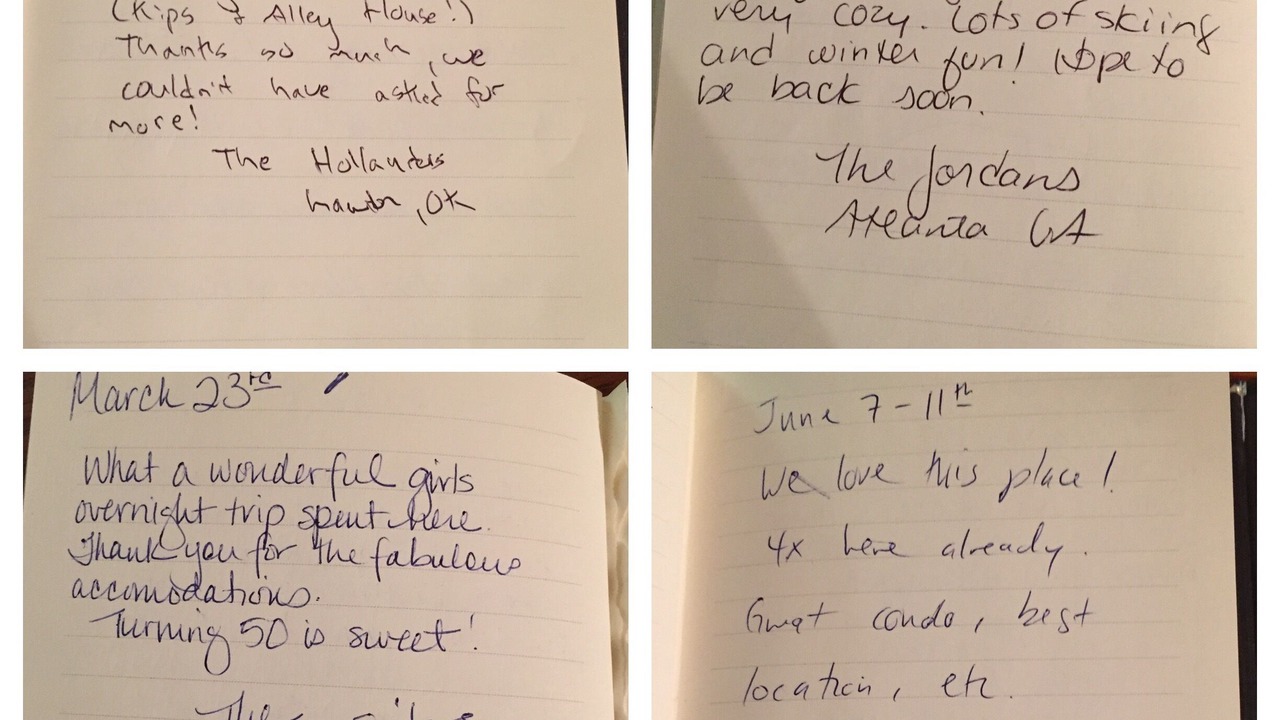 (Kips & Alley House!)
Thanks so much, we
couldn't have asked for
more!
The Hollanders
Lawton, OK
very cozy. Lots of skiing
and winter fun! Hope to
be back soon.
The Jordans
Atlanta GA
March 23rd
What a wonderful girls
overnight trip spent here.
Thank you for the fabulous
accomodations.
Turning 50 is sweet!
The
June 7-11th
We love this place!
4x here already.
Great condo, best
location, etc.